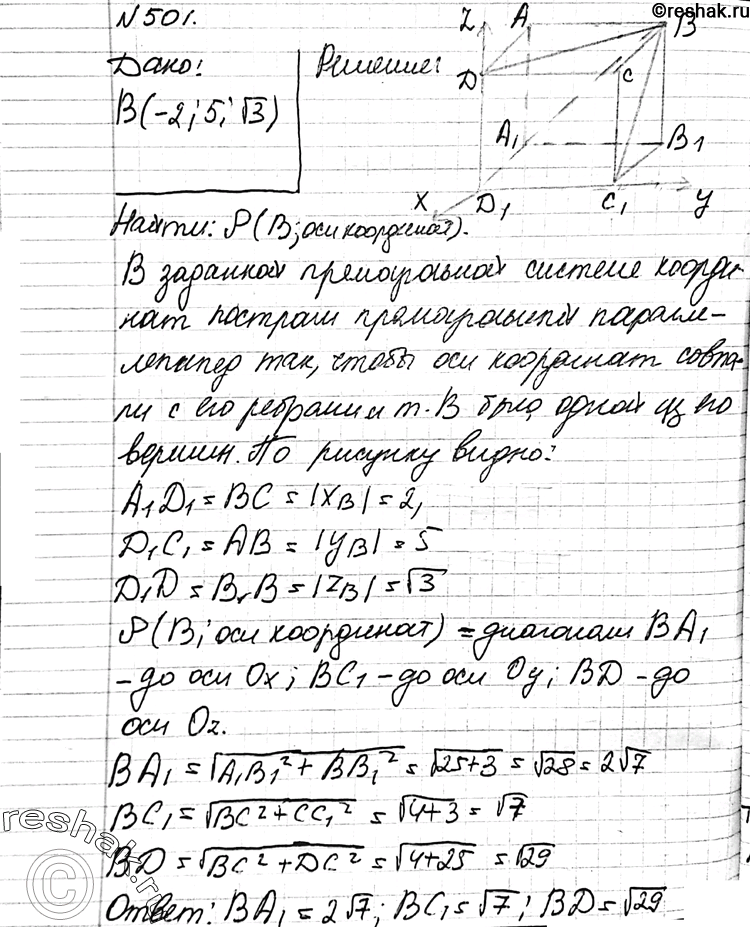 ©reshak.ru
N 501.
Дано:
B(-2; 5; √3)
Решение:
Z A B
D C
A₁ B₁
X D₁ C₁ y
Найти: ρ(B; оси координат).
В заданной прямоугольной системе коорди-
нат построим прямоугольный паралле-
лепипед так, чтобы оси координат совпа-
ли с его ребрами и т. B была одной из его
вершин. По рисунку видно:
A₁D₁ = BC = |x_B| = 2,
D₁C₁ = AB = |y_B| = 5
D₁D = B₁B = |z_B| = √3
ρ(B; оси координат) = диагонали BA₁
- до оси Ox; BC₁ - до оси Oy; BD - до
оси Oz.
BA₁ = √(A₁B₁² + BB₁²) = √(25+3) = √28 = 2√7
BC₁ = √(BC² + CC₁²) = √(4+3) = √7
BD = √(BC² + DC²) = √(4+25) = √29
Ответ: BA₁ = 2√7; BC₁ = √7; BD = √29
©reshak.ru